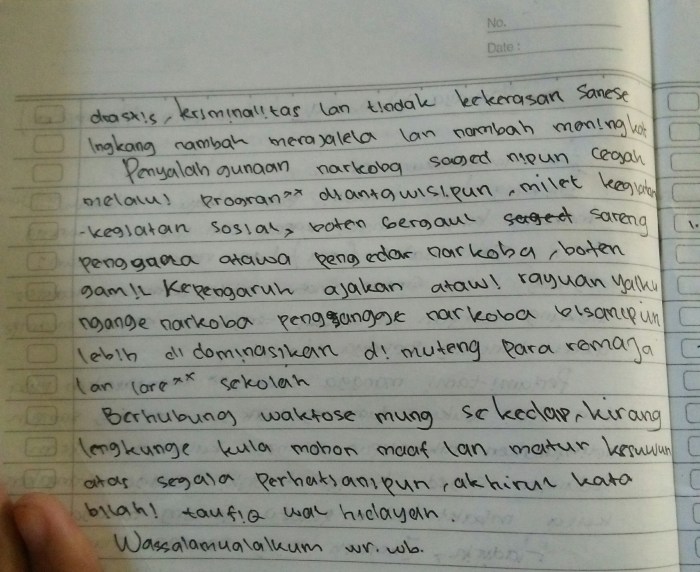 No.
Date :
drastis, kriminalitas lan tindak kekerasan sanese
Ingkang nambah merajalela lan nambah meningkat
Penyalah gunaan narkoba saged nipun cegah
melalui program ** diantawisipun, milet kegiatan
-kegiatan sosial, boten bergaul sareng
penggana atawa pengedar narkoba, boten
gampil kepengaruh ajakan atawi rayuan yaiku
ngange narkoba penggangge narkoba bisanipun
lebih di dominasikan di muteng para remaja
lan lare ** sekolah
Berhubung waktose mung sekedap, kirang
lengkunge kula mohon maaf lan matur kesuwun
atas segala perhatianipun, akhirul kata
bilahi taufiq wal hidayah.
Wassalamualaikum wr. wb.
1.